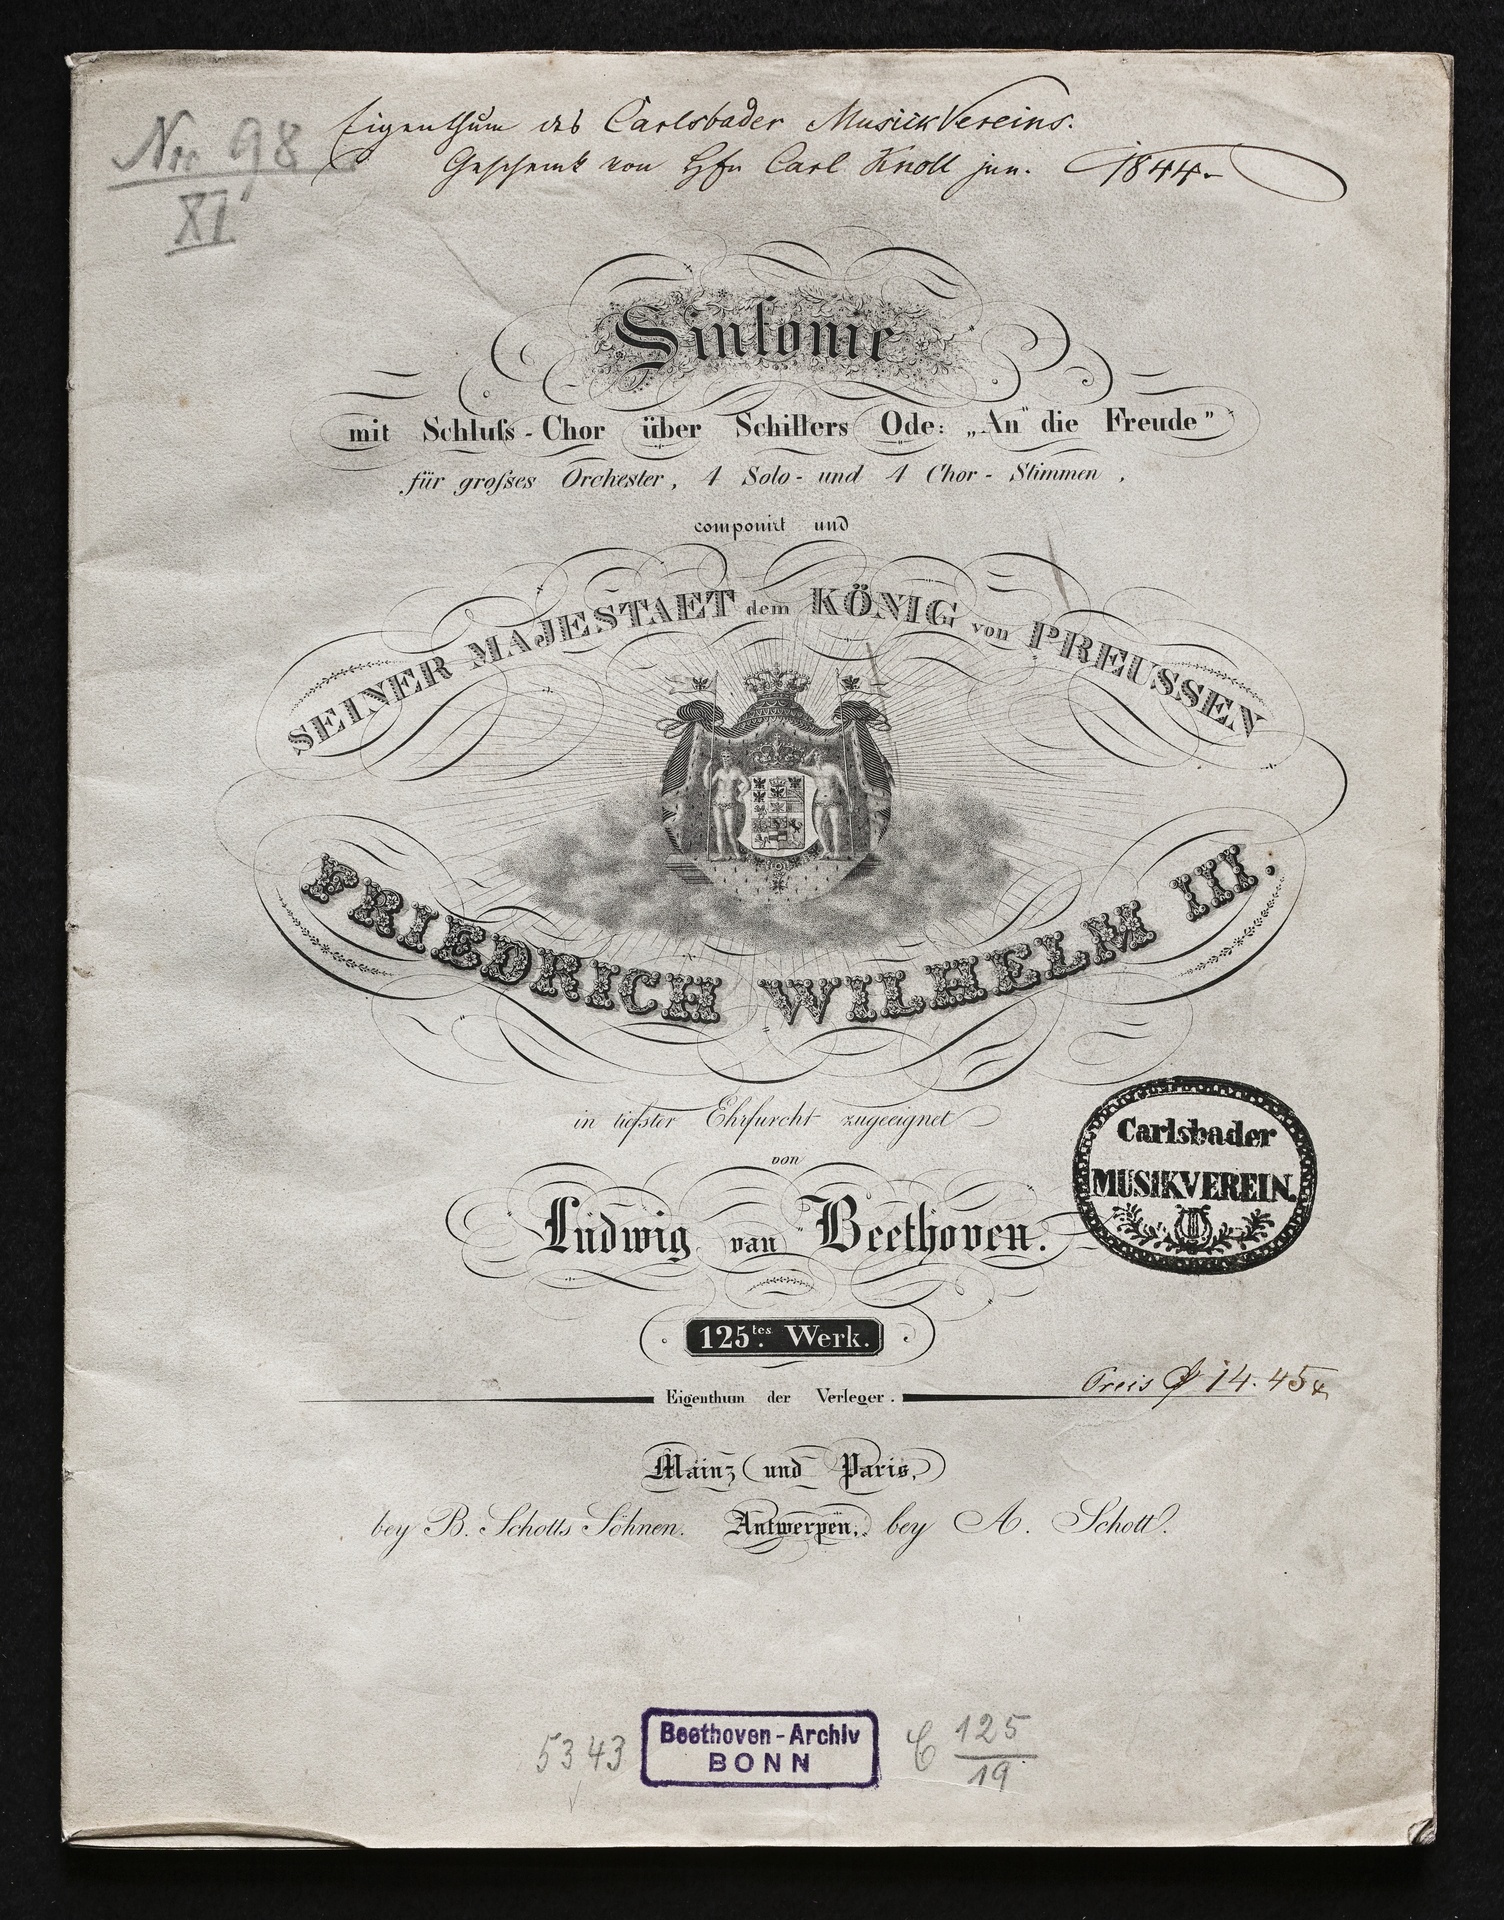 Nro 98
XI
Eigenthum des Carlsbader MusikVereins.
Geschenk von Hfn Carl Knoll jun. 1844.
Sinfonie
mit Schluſs-Chor über Schillers Ode: „An die Freude”
für groſses Orchester, 4 Solo- und 4 Chor-Stimmen,
componirt und
SEINER MAJESTAET dem KÖNIG von PREUSSEN
FRIEDRICH WILHELM III.
in tiefster Ehrfurcht zugeeignet
von
Ludwig van Beethoven.
Carlsbader
MUSIKVEREIN.
125tes. Werk.
Preis f 14.45x
Eigenthum der Verleger.
Mainz und Paris,
bey B. Schotts Söhnen. Antwerpen, bey A. Schott.
5343
Beethoven-Archiv
BONN
C 125
19